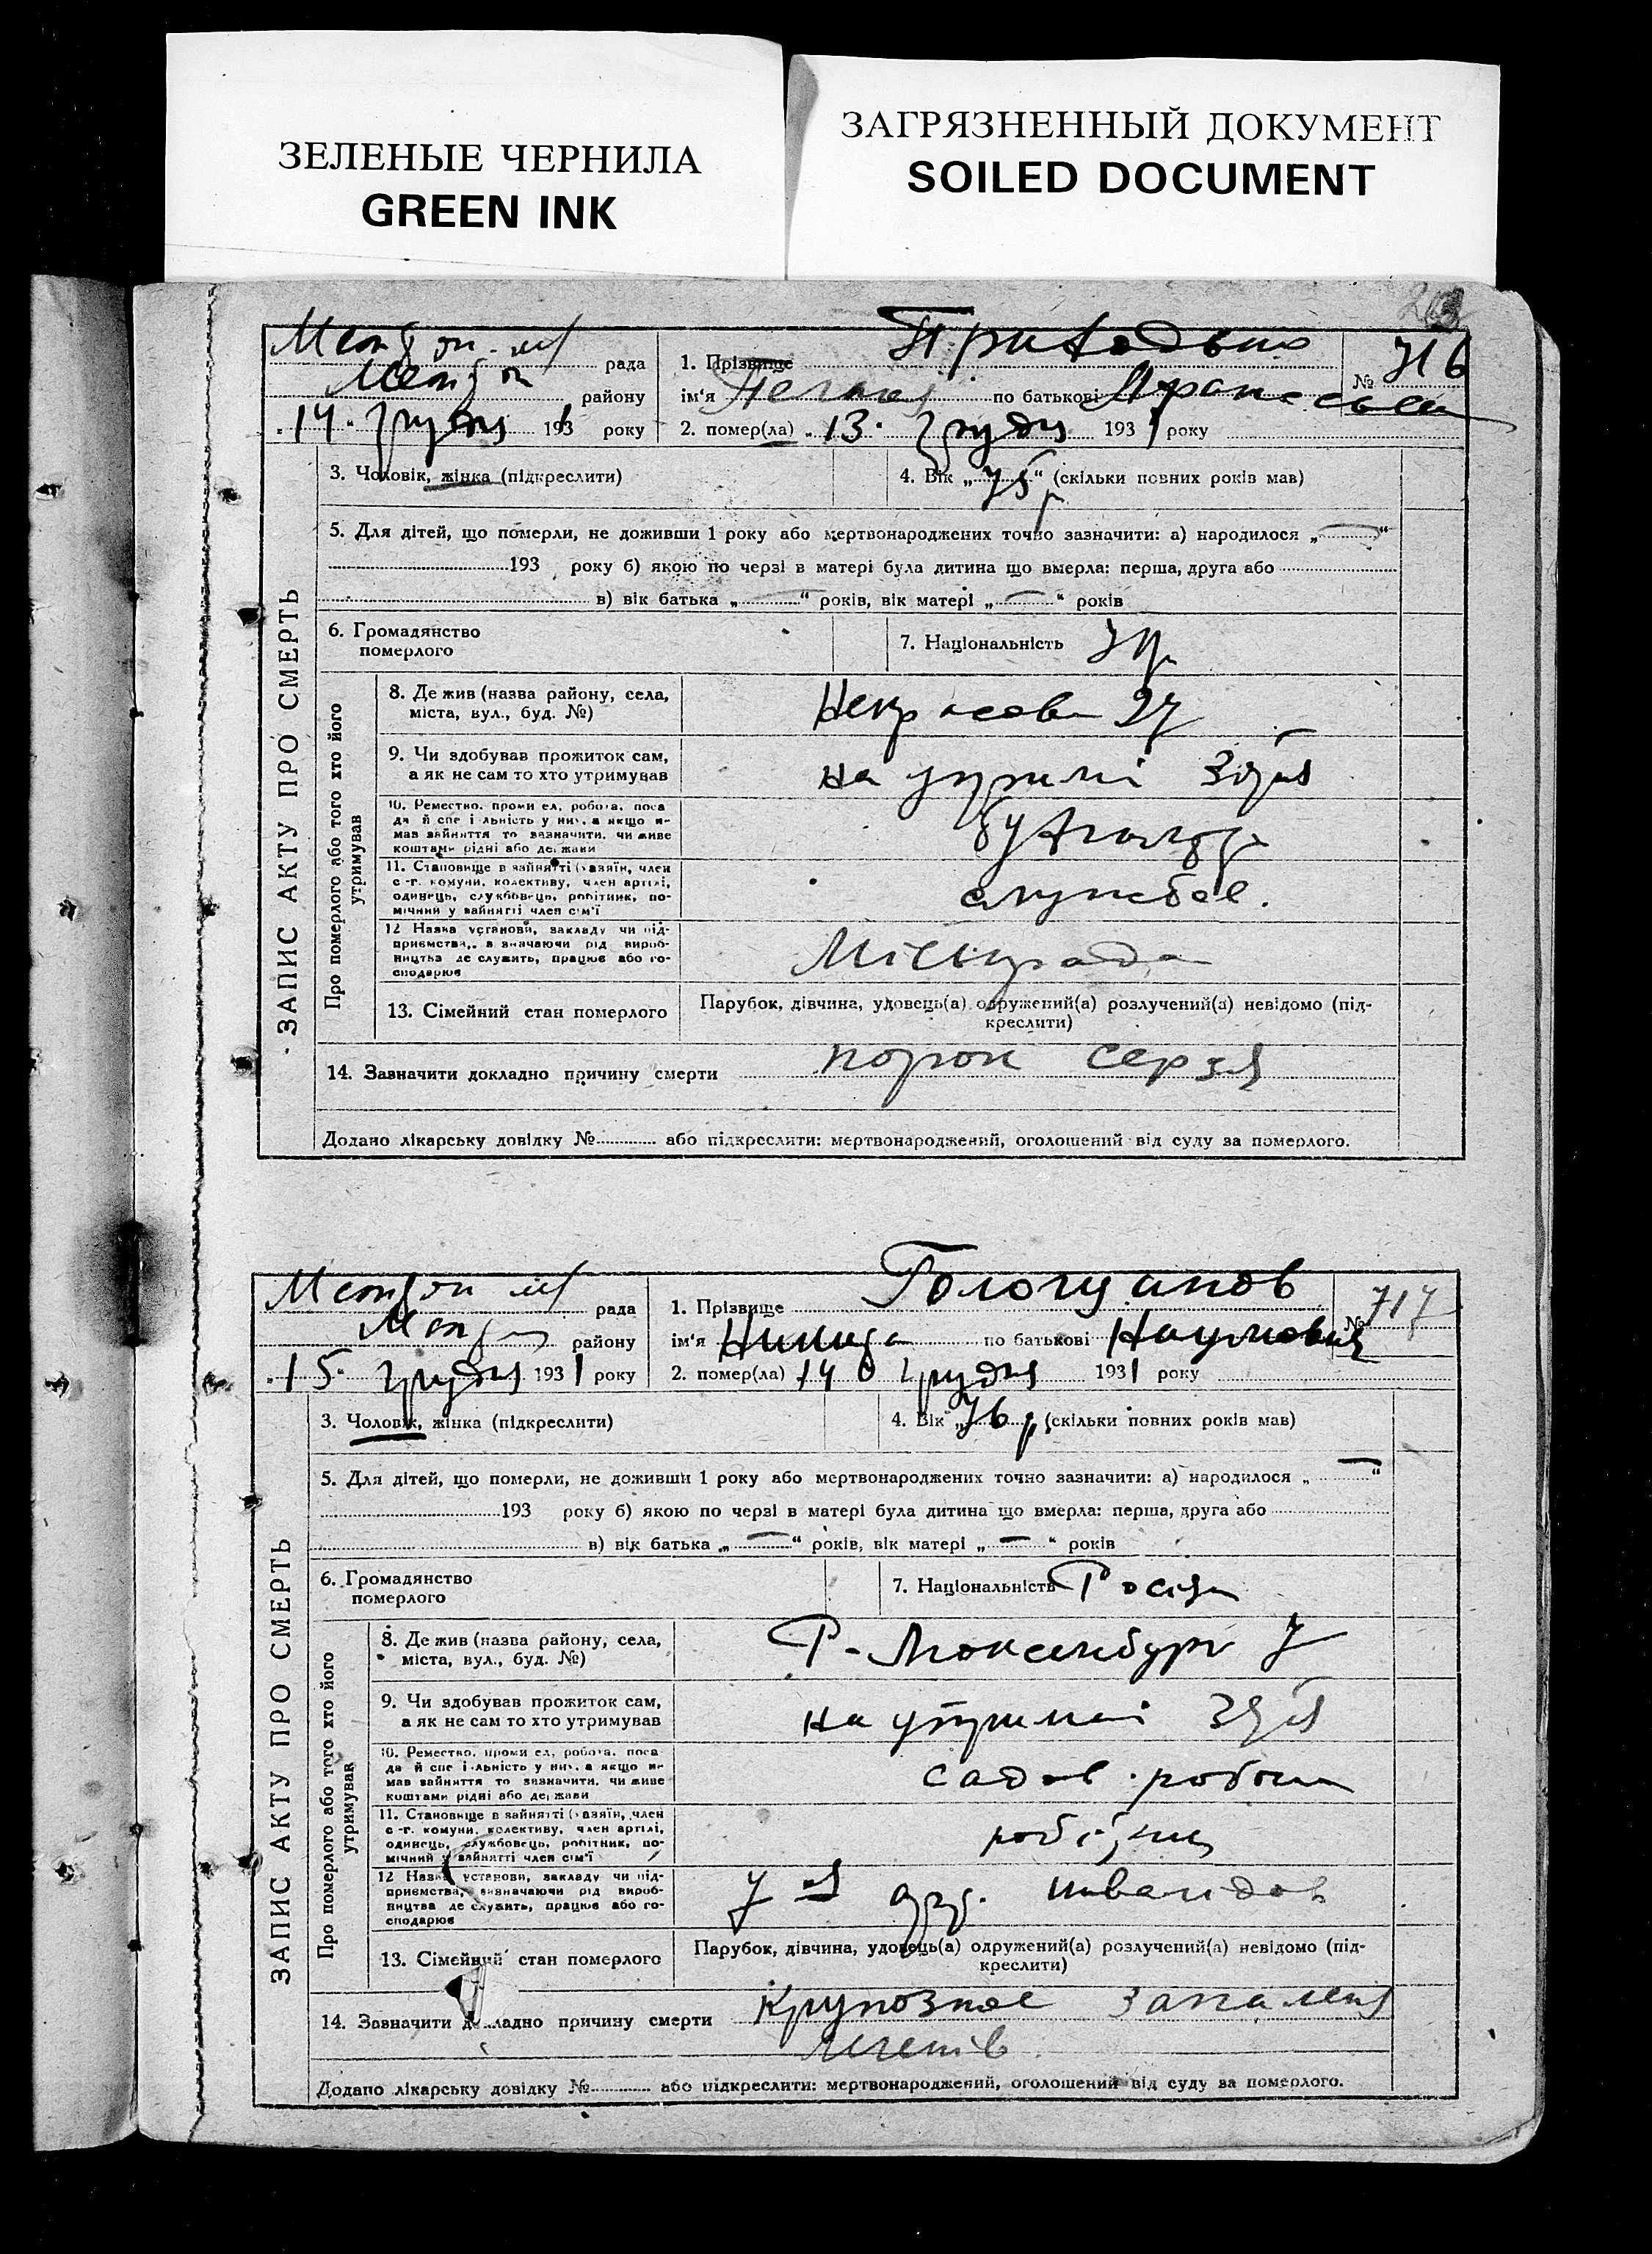 ЗЕЛЕНЫЕ ЧЕРНИЛА
GREEN INK
ЗАГРЯЗНЕННЫЙ ДОКУМЕНТ
SOILED DOCUMENT
рада
району
14. грудня 1931 року
1. Прізвище Приходько
ім'я по батькові
№ 716
2. помер(ла) 13. грудня 1931 року
3. Чоловік, жінка (підкреслити)
4. Вік „75 р“ (скільки повних років мав)
5. Для дітей, що померли, не доживши 1 року або мертвонароджених точно зазначити: а) народилося „—“
193 року б) якою по черзі в матері була дитина що вмерла: перша, друга або
в) вік батька „—“ років, вік матері „—“ років
6. Громадянство
померлого
7. Національність Укр
ЗАПИС АКТУ ПРО СМЕРТЬ
Про померлого або того хто його
утримував
8. Де жив (назва району, села,
міста, вул., буд. №)
Некрасова 27
9. Чи здобував прожиток сам,
а як не сам то хто утримував
на утримані Зятя
10. Ремество, проми ел, робота, поса
да й спе і льність у них, а якщо н-
мав зайняття то зазначити, чи живе
коштами рідні або держави
бухгалтер
11. Становище в зайнятті (хазяїн, член
с.-г. комуни, колективу, член артілі,
одинець, службовець, робітник, по-
мічний у зайнятті член сім'ї
12 Назва установи, закладу чи під-
приємства, визначаючи рід вироб-
ництва де служить, працює або го-
сподарює
Міськрада
13. Сімейний стан померлого
Парубок, дівчина, удовець(а) одружений(а) розлучений(а) невідомо (під-
креслити)
14. Зазначити докладно причину смерти порок серця
Додано лікарську довідку № або підкреслити: мертвонароджений, оголошений від суду за померлого.
рада
району
15. грудня 1931 року
1. Прізвище
ім'я Никита по батькові Наумович
№ 717
2. помер(ла) 14 грудня 1931 року
3. Чоловік, жінка (підкреслити)
4. Вік „76 р“ (скільки повних років мав)
5. Для дітей, що померли, не доживши 1 року або мертвонароджених точно зазначити: а) народилося „—“
193 року б) якою по черзі в матері була дитина що вмерла: перша, друга або
в) вік батька „—“ років, вік матері „—“ років
6. Громадянство
померлого
7. Національність
ЗАПИС АКТУ ПРО СМЕРТЬ
Про померлого або того хто його
утримував
8. Де жив (назва району, села,
міста, вул., буд. №)
Р-Люксембург 7
9. Чи здобував прожиток сам,
а як не сам то хто утримував
на утримані Зятя
10. Ремество, проми ел, робота, поса
да й спе і льність у них, а якщо н-
мав зайняття то зазначити, чи живе
коштами рідні або держави
садов. робіт
11. Становище в зайнятті (хазяїн, член
с.-г. комуни, колективу, член артілі,
одинець, службовець, робітник, по-
мічний у зайнятті член сім'ї
робітник
12 Назва установи, закладу чи під-
приємства, визначаючи рід вироб-
ництва де служить, працює або го-
сподарює
инвалидов
13. Сімейний стан померлого
Парубок, дівчина, удовець(а) одружений(а) розлучений(а) невідомо (під-
креслити)
14. Зазначити докладно причину смерти крупозное запаленя
легенів
Додано лікарську довідку № або підкреслити: мертвонароджений, оголошений від суду за померлого.